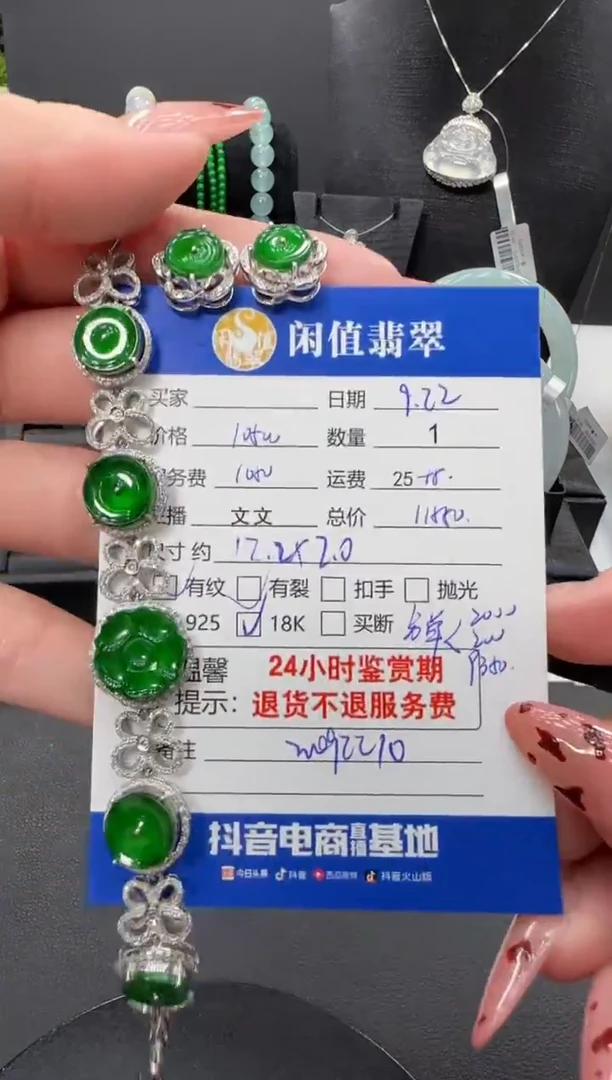 闲值翡翠
买家 日期 9.22
价格 数量 1
务费 1080 运费 25
播 文文 总价 11880.
尺寸 约 17.2x7.0
有纹 有裂 扣手 抛光
925 18K 买断
温馨 24小时鉴赏期
提示: 退货不退服务费
备注
抖音电商直播基地
今日头条 抖音 西瓜视频 抖音火山版